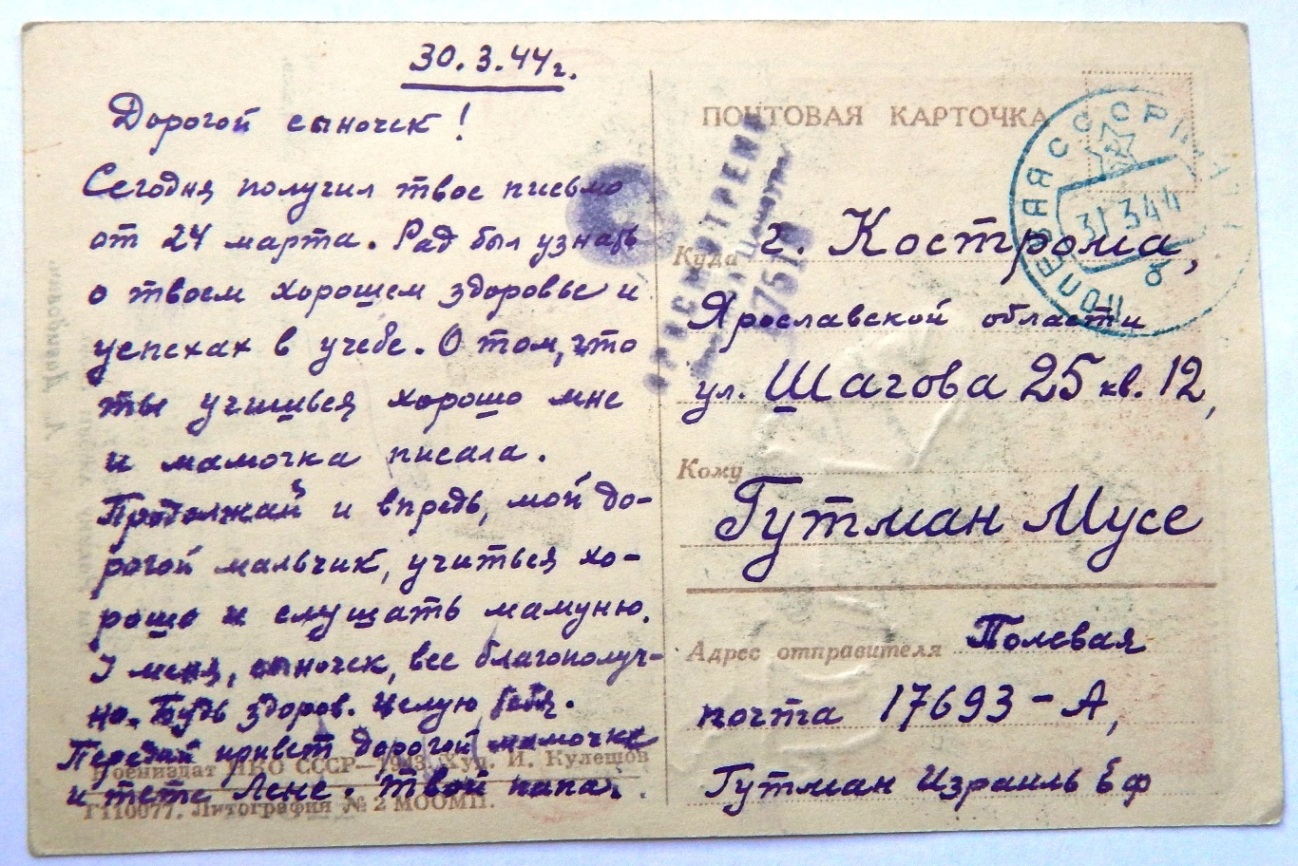 30.3.44 г.
Дорогой сыночек!
Сегодня получил твое письмо
от 24 марта. Рад был узнать
о твоем хорошем здоровье и
успехах в учебе. О том, что
ты учишься хорошо мне
и мамочка писала.
Продолжай и впредь, мой до-
рогой мальчик, учиться хо-
рошо и слушать мамуню.
У меня, сыночек, все благополуч-
но. Будь здоров. Целую тебя.
Передай привет дорогой мамочке
и тете Лене. Твой папа.
Воениздат НКО СССР—1943. Худ. И. Кулешов
Г110077. Литография № 2 МООМП.
ПОЧТОВАЯ КАРТОЧКА
ПОЛЕВАЯ СССР
31 3 44
б
ПРОСМОТРЕНО
Куда г. Кострома,
Ярославской области
ул. Шагова 25 кв. 12,
Кому
Гутман Мусе
Адрес отправителя Полевая
почта 17693-А,
Гутман Израиль Еф